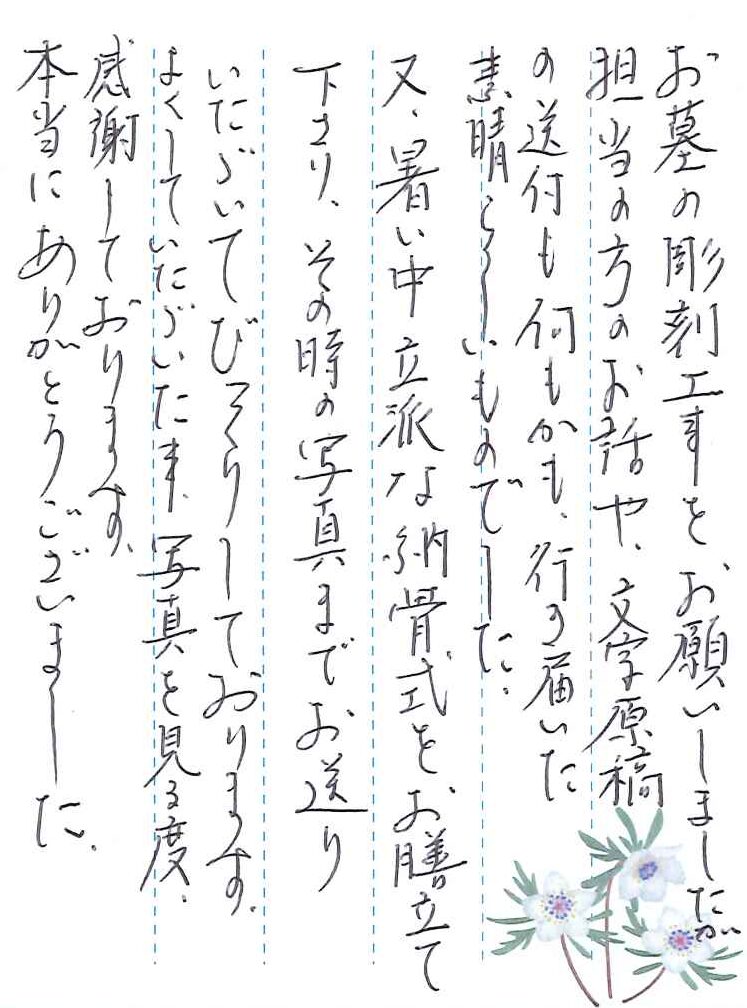 お墓の彫刻工事をお願いしましたが
担当の方のお話や、文字原稿
の送付も何もかも、行き届いた
素晴らしいものでした。
又、暑い中立派な納骨式をお膳立て
下さり、その時の写真までお送り
いただいてびっくりしております。
よくしていただいた事、写真を見る度、
感謝しております。
本当にありがとうございました。